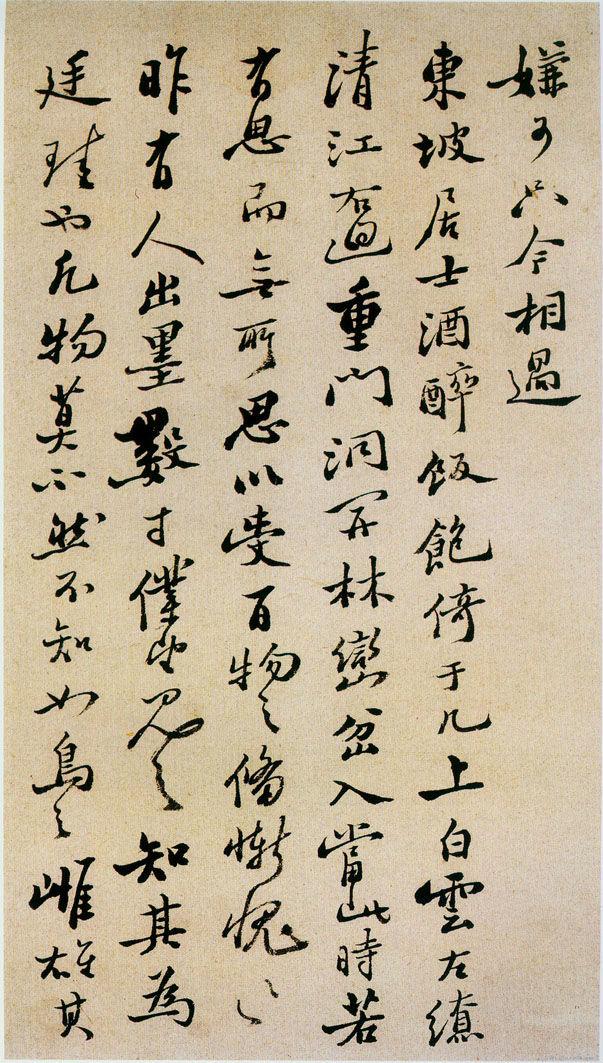 嫌可只令相過
東坡居士酒醉飯飽倚于几上白雲左繚
清江右迴重門洞開林巒坌入當此時若
有思而無所思以受百物之備慚愧〻
昨有人出墨數寸僕望見之知其為
廷珪也凡物莫不然不知如烏之雌雄其